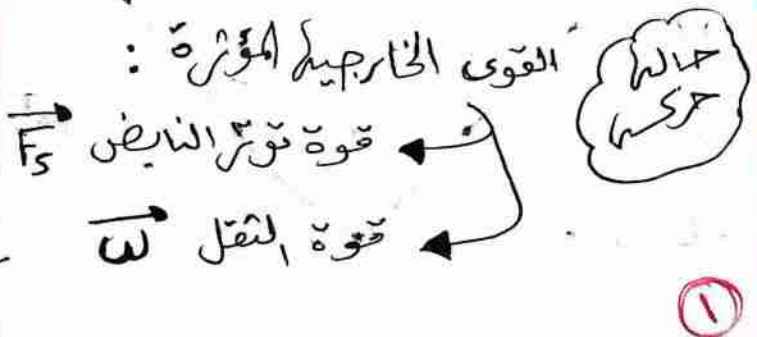 حالة
حركة
القوى الخارجية المؤثرة :
قوة توتر النابض Fs
قوة الثقل W
١